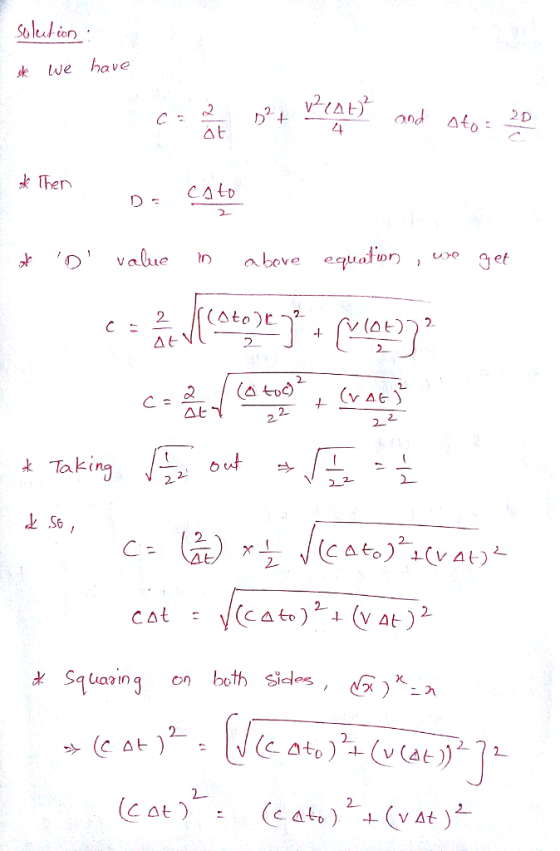 Solution :
* we have
C = 2/Δt D² + V²(Δt)²/4 and Δt₀ = 2D/C
* Then
D = CΔt₀/2
* 'D' value in above equation , we get
C = 2/Δt √([(Δt₀)C/2]² + [V(Δt)/2]²)
C = 2/Δt √((Δt₀C)²/2² + (VΔt)²/2²)
* Taking √(1/2²) out ⇒ √(1/2²) = 1/2
* So ,
C = (2/Δt) × 1/2 √((CΔt₀)² + (VΔt)²)
CΔt = √((CΔt₀)² + (VΔt)²)
* Squaring on both sides , (√x)ˣ = x
⇒ (CΔt)² = [√((CΔt₀)² + (V(Δt))²]²
(CΔt)² = (CΔt₀)² + (VΔt)²